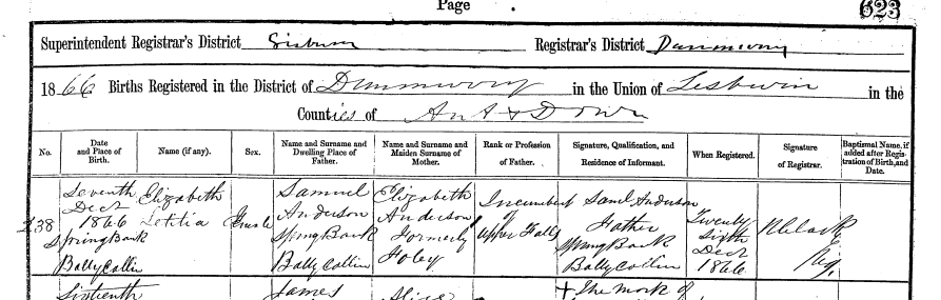 Page
623
Superintendent Registrar's District Lisburn Registrar's District Dunmurry
1866 Births Registered in the District of Dunmurry in the Union of Lisburn in the
Counties of Ant & Down
No. Date and Place of Birth. Name (if any). Sex. Name and Surname and Dwelling Place of Father. Name and Surname and Maiden Surname of Mother. Rank or Profession of Father. Signature, Qualification, and Residence of Informant. When Registered. Signature of Registrar. Baptismal Name, if added after Registration of Birth, and Date.
38 Seventh Dect 1866 Spring Bank Ballycollin Elizabeth Letitia Female Samuel Anderson Spring Bank Ballycollin Elizabeth Anderson formerly Foley Incumbent of Upper Falls Saml Anderson Father Spring Bank Ballycollin Twenty Sixth Dect 1866 Clark Reg.
Sixteenth James Alice + The mark of